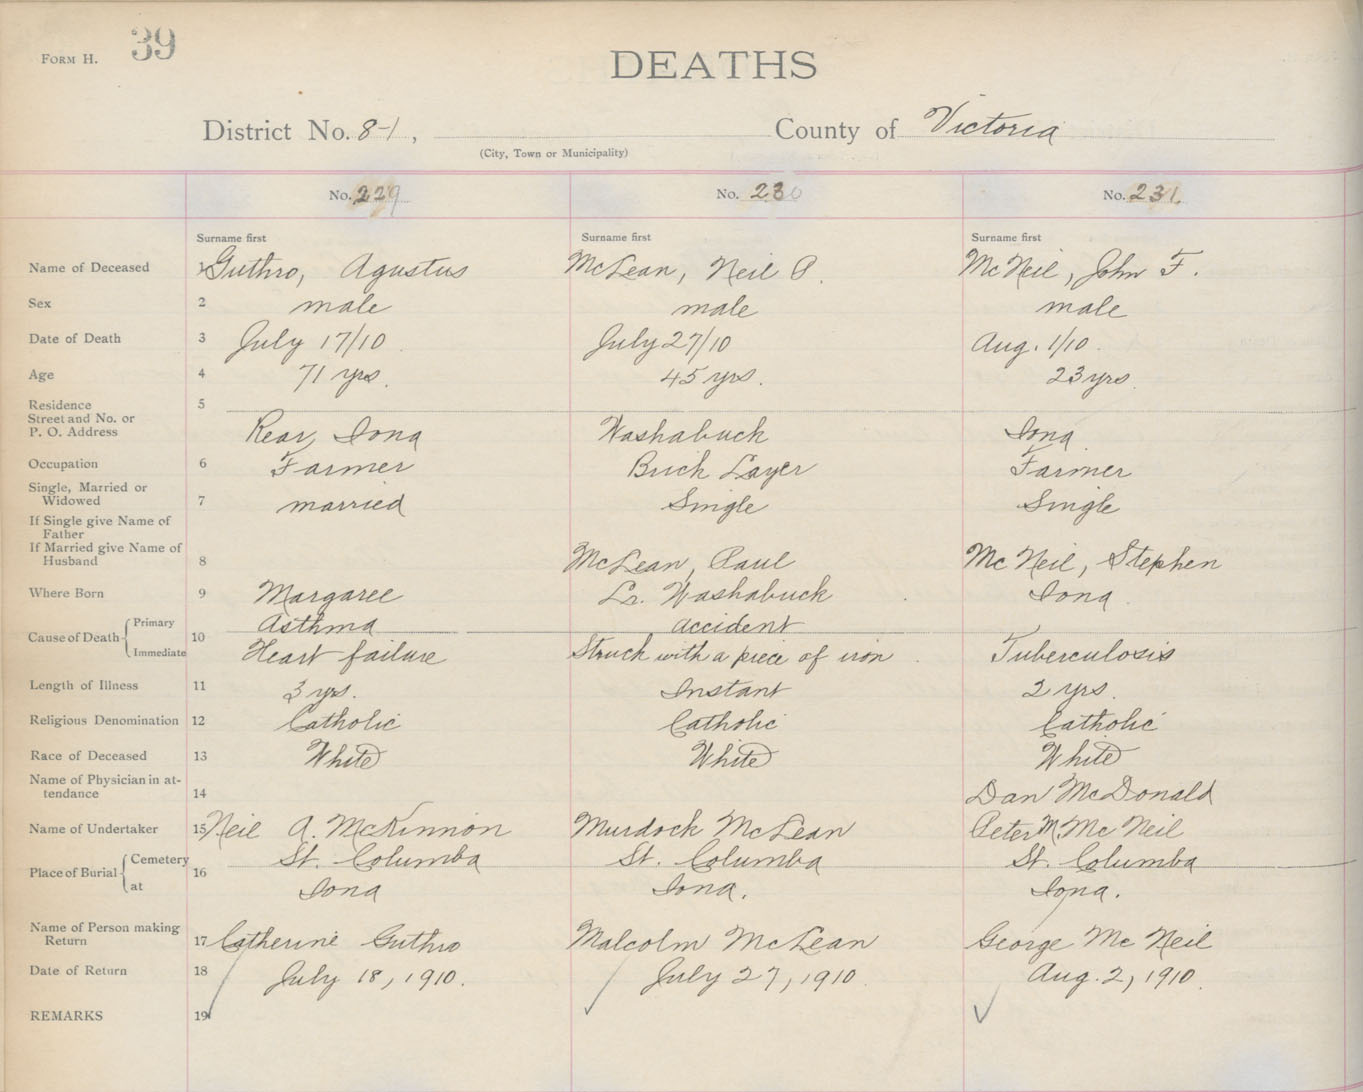 FORM H. 39
DEATHS
District No. 8-1, County of Victoria
(City, Town or Municipality)
No. 229 No. 230 No. 231
Surname first Surname first Surname first
Name of Deceased 1 Guthro, Agustus McLean, Neil P. McNeil, John F.
Sex 2 male male male
Date of Death 3 July 17/10 July 27/10 Aug. 1/10
Age 4 71 yrs. 45 yrs. 23 yrs.
Residence 5
Street and No. or
P. O. Address Rear, Iona Washabuck Iona
Occupation 6 Farmer Brick Layer Farmer
Single, Married or
Widowed 7 married Single Single
If Single give Name of
Father
If Married give Name of
Husband 8 McLean, Paul McNeil, Stephen
Where Born 9 Margaree Lr. Washabuck Iona
Primary Asthma accident
Cause of Death 10
Immediate Heart failure Struck with a piece of iron Tuberculosis
Length of Illness 11 3 yrs. Instant 2 yrs.
Religious Denomination 12 Catholic Catholic Catholic
Race of Deceased 13 White White White
Name of Physician in at-
tendance 14 Dan McDonald
Name of Undertaker 15 Neil A. McKinnon Murdock McLean Peter M. McNeil
Cemetery St. Columba St. Columba St. Columba
Place of Burial 16
at Iona Iona. Iona.
Name of Person making
Return 17 Catherine Guthro Malcolm McLean George McNeil
Date of Return 18 July 18, 1910. July 27, 1910 Aug. 2, 1910.
REMARKS 19